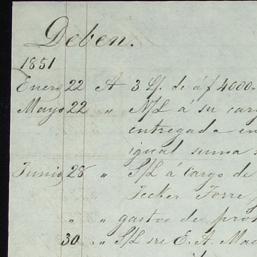 Deben.
1851
Enero 22 A 3 L/. de á f 4000.
Mayo 22 " N/L á su carg
entregada en
igual suma
Junio 28 " S/L á cargo de
Jecker Torre
" " gastos de pro
30 " S/L s/e E. A. Mac